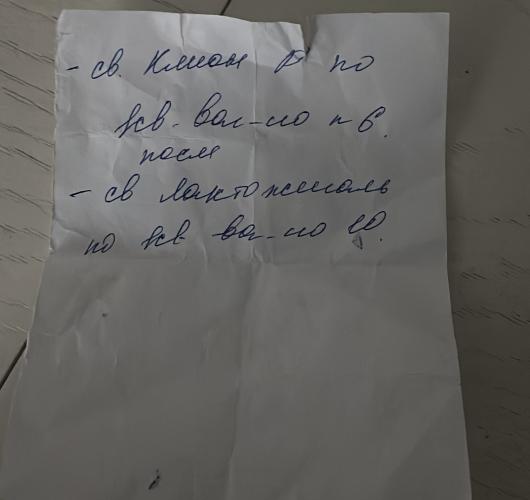 - св. Клион Д по
1 св. ваг-но n 6.
после
- св Лактожиналь
по 1 св ваг-но 10.